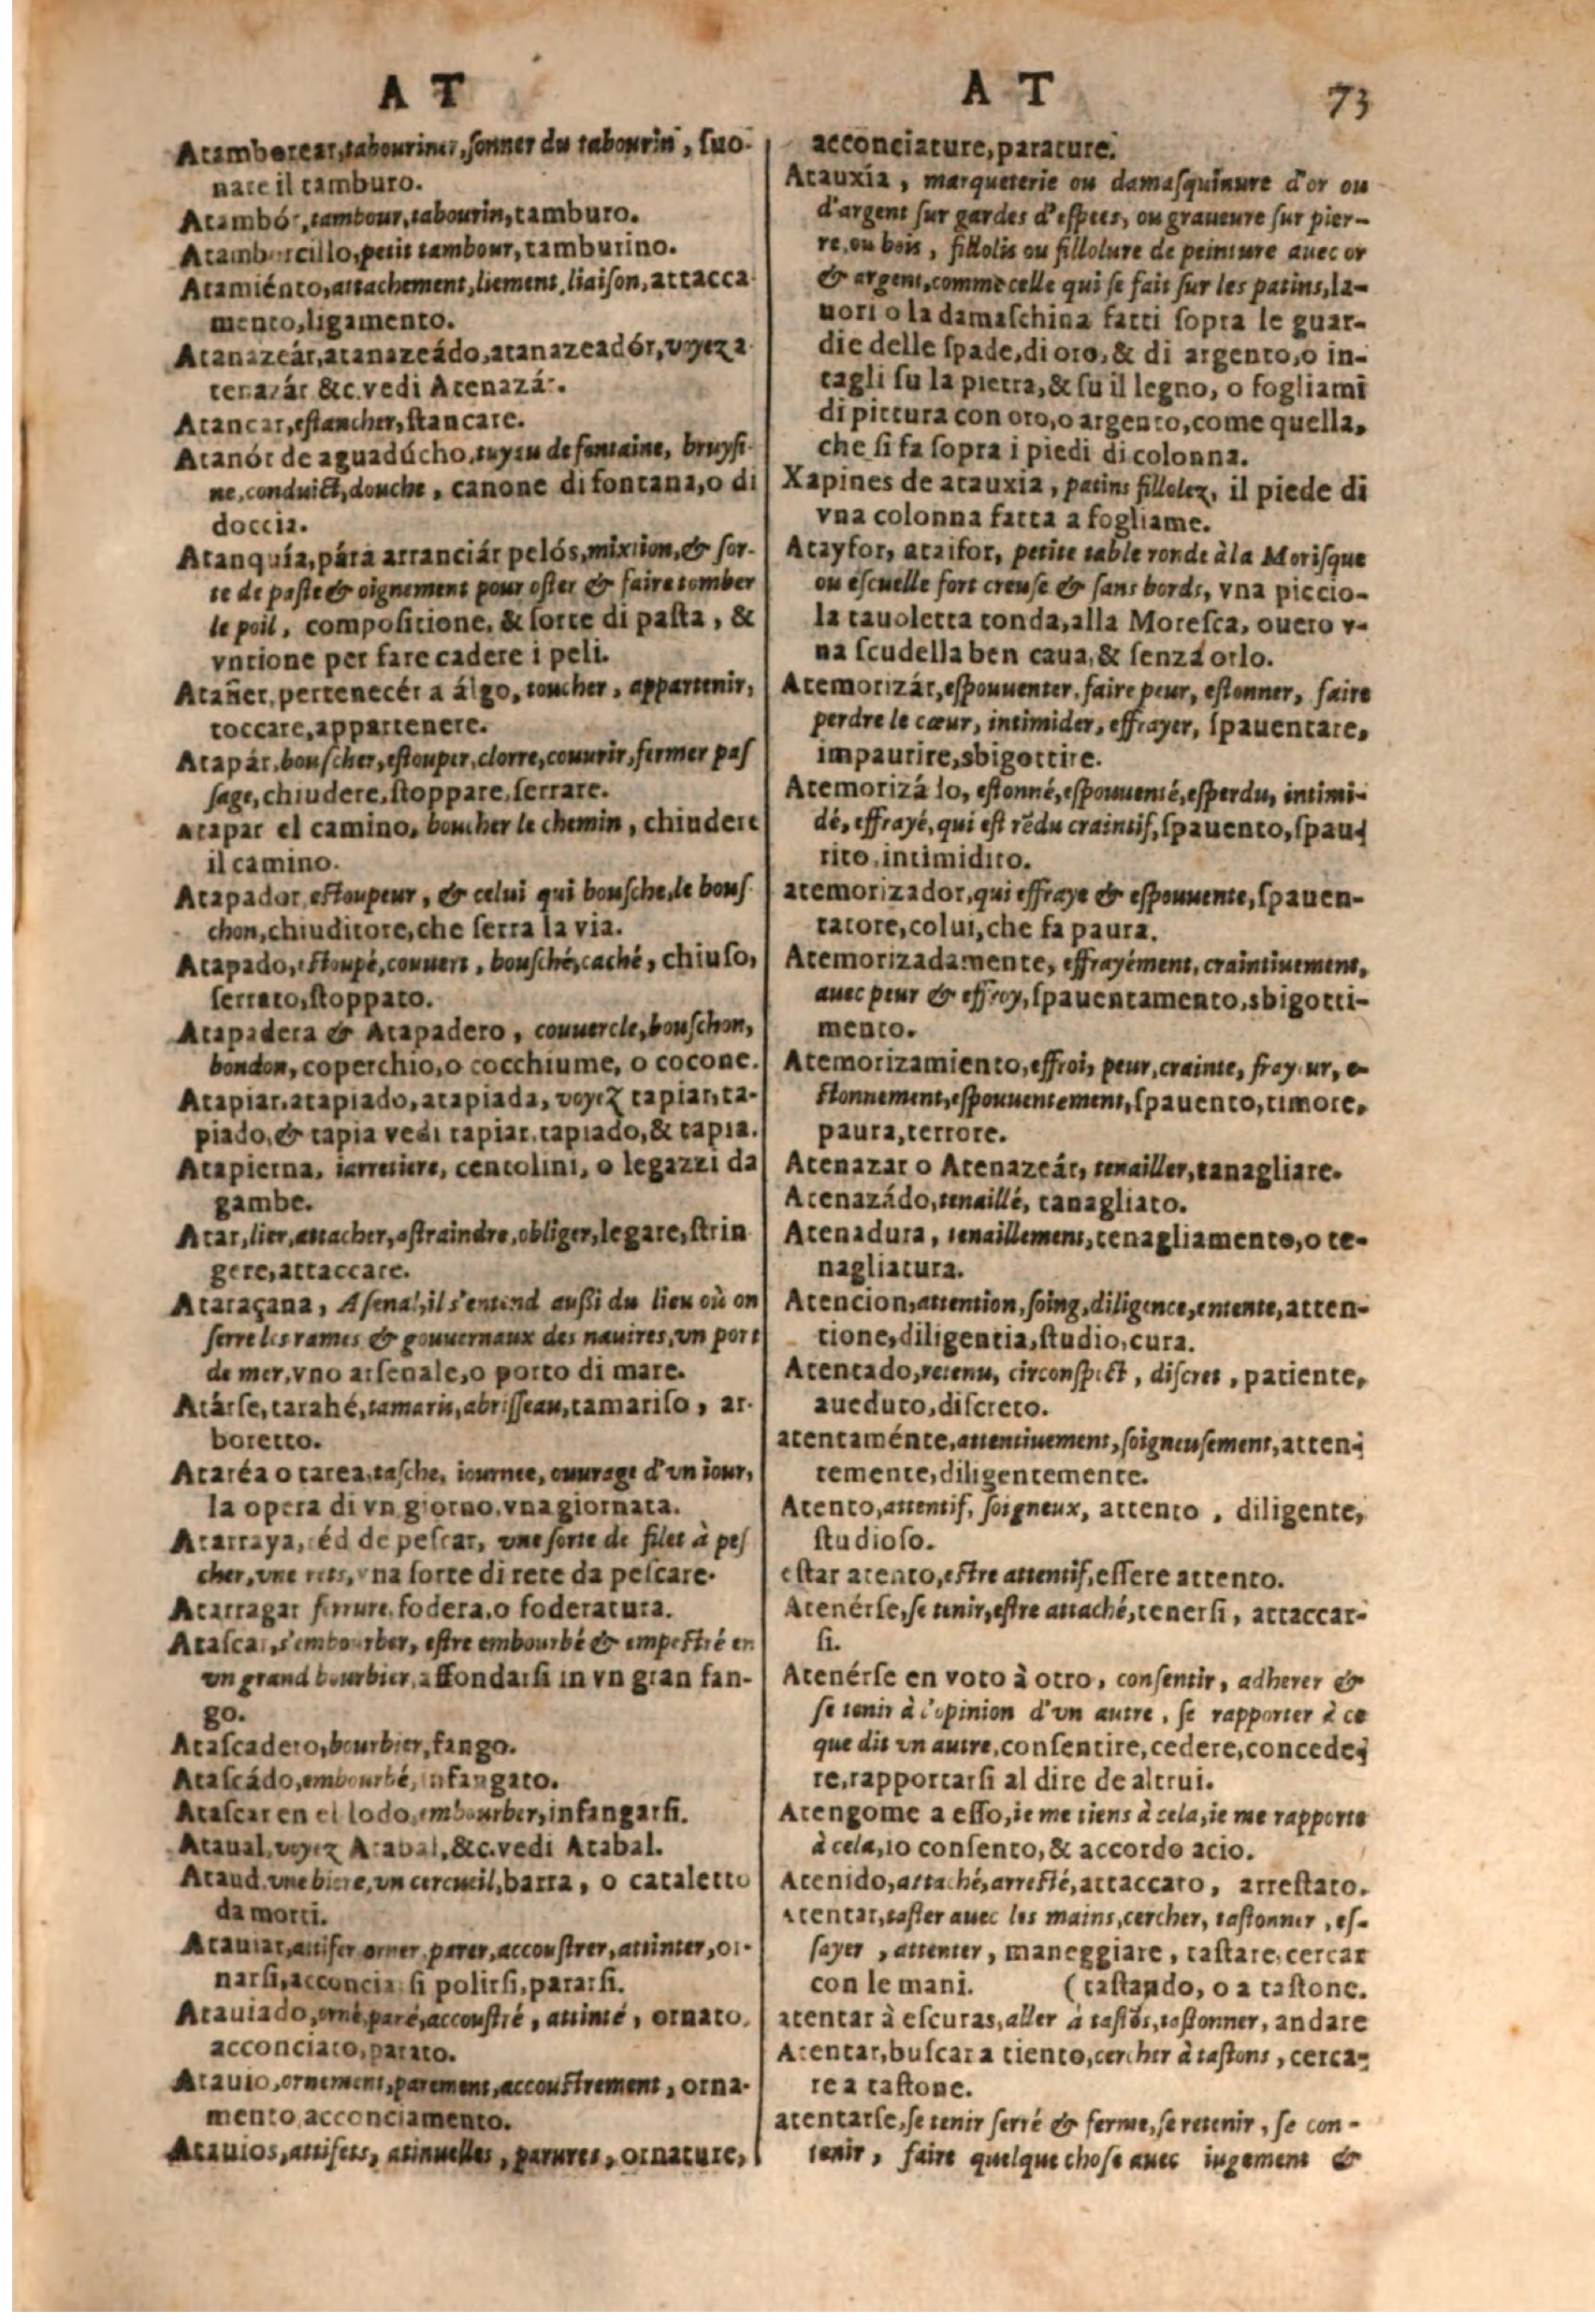 A T
Atamborear, tabouriner, sonner du tabourin, suo-
nare il tamburo.
Atambór, tambour, tabourin, tamburo.
Atamborcillo, petit tambour, tamburino.
Atamiénto, attachement, liement, liaison, attacca
mento, ligamento.
Atanazeár, atanazeádo, atanazeadór, voyez a
tenazár &c. vedi Atenazár.
Atancar, estancher, stancare.
Atanór de aguadúcho, tuyau de fontaine, bruysi-
ne, conduict, douche, canone di fontana, o di
doccia.
Atanquía, pára arranciár pelós, mixtion, & sor-
te de paste & oignement pour oster & faire tomber
le poil, compositione, & sorte di pasta, &
vntione per fare cadere i peli.
Atañer, pertenecér a álgo, toucher, appartenir,
toccare, appartenere.
Atapár, bouscher, estouper, clorre, couurir, fermer pas
sage, chiudere, stoppare, serrare.
atapar el camino, boucher le chemin, chiudere
il camino.
Atapador, estoupeur, & celui qui bousche, le bous
chon, chiuditore, che serra la via.
Atapado, estoupé, couuert, bousché, caché, chiuso,
serrato, stoppato.
Atapadera & Atapadero, couuercle, bouschon,
bondon, coperchio, o cocchiume, o cocone.
Atapiar, atapiado, atapiada, voyez tapiar, ta-
piado, & tapia vedi tapiar, tapiado, & tapia.
Atapierna, iarretiere, centolini, o legazzi da
gambe.
Atar, lier, attacher, astraindre, obliger, legare, strin
gere, attaccare.
Ataraçana, Asenal, il s'entend außi du lieu où on
serre les rames & gouuernaux des nauires, vn port
de mer, vno arsenale, o porto di mare.
Atárse, tarahé, tamaris, abrisseau, tamariso, ar-
boretto.
Ataréa o tarea, tasche, iournee, ouurage d'vn iour,
la opera di vn giorno, vna giornata.
Atarraya, réd de pescar, vne sorte de filet à pes
cher, vne rets, vna sorte di rete da pescare.
Atarragar ferrure, fodera, o foderatura.
Atascar, s'embourber, estre embourbé & empestré en
vn grand bourbier, affondarsi in vn gran fan-
go.
Atascadero, bourbier, fango.
Atascádo, embourbé, infangato.
Atascar en el lodo, embourber, infangarsi.
Ataual, voyez Atabal, &c. vedi Atabal.
Ataud, vne biere, vn cercueil, barra, o cataletto
da morti.
Atauiar, attifer orner, parer, accoustrer, attinter, or-
narsi, acconciarsi polirsi, pararsi.
Atauiado, orné, paré, accoustré, attinté, ornato,
acconciato, parato.
Atauio, ornement, parement, accoustrement, orna-
mento, acconciamento.
Atauios, attifets, atinuelles, parures, ornature,
A T 73
acconciature, parature.
Atauxía, marqueterie ou damasquinure d'or ou
d'argent sur gardes d'espees, ou graueure sur pier-
re, ou bois, fillolis ou fillolure de peinture auec or
& argent, comme celle qui se fait sur les patins, la-
uori o la damaschina fatti sopra le guar-
die delle spade, di oro, & di argento, o in-
tagli su la pietra, & su il legno, o fogliami
di pittura con oro, o argento, come quella,
che si fa sopra i piedi di colonna.
Xapines de atauxia, patins fillolez, il piede di
vna colonna fatta a fogliame.
Atayfor, ataifor, petite table ronde à la Morisque
ou escuelle fort creuse & sans bords, vna piccio-
la tauoletta tonda, alla Moresca, ouero v-
na scudella ben caua, & senza orlo.
Atemorizár, espouuenter, faire peur, estonner, faire
perdre le cœur, intimider, effrayer, spauentare,
impaurire, sbigottire.
Atemorizádo, estonné, espouuenté, esperdu, intimi-
dé, effrayé, qui est rẽdu craintif, spauento, spau-
rito, intimidito.
atemorizador, qui effraye & espouuente, spauen-
tatore, colui, che fa paura.
Atemorizadamente, effrayément, craintiuement,
auec peur & effroy, spauentamento, sbigotti-
mento.
Atemorizamiento, effroi, peur, crainte, frayeur, e-
stonnement, espouuentement, spauento, timore,
paura, terrore.
Atenazar o Atenazeár, tenailler, tanagliare.
Atenazádo, tenaillé, tanagliato.
Atenadura, tenaillement, tenagliamento, o te-
nagliatura.
Atencion, attention, soing, diligence, entente, atten-
tione, diligentia, studio, cura.
Atentado, retenu, circonspect, discret, patiente,
aueduto, discreto.
atentaménte, attentiuement, soigneusement, atten-
temente, diligentemente.
Atento, attentif, soigneux, attento, diligente,
studioso.
estar atento, estre attentif, essere attento.
Atenérse, se tenir, estre attaché, tenersi, attaccar-
si.
Atenérse en voto à otro, consentir, adherer &
se tenir à l'opinion d'vn autre, se rapporter à ce
que dit vn autre, consentire, cedere, concede-
re, rapportarsi al dire de altrui.
Atengome a esso, ie me tiens à cela, ie me rapporte
à cela, io consento, & accordo acio.
Atenido, attaché, arresté, attaccato, arrestato.
Atentar, taster auec les mains, cercher, tastonner, es-
sayer, attenter, maneggiare, tastare, cercar
con le mani. (tastando, o a tastone.
atentar à escuras, aller à tastõs, tastonner, andare
Atentar, buscar a tiento, cercher à tastons, cerca-
re a tastone.
atentarse, se tenir serré & ferme, se retenir, se con-
tenir, faire quelque chose auec iugement &